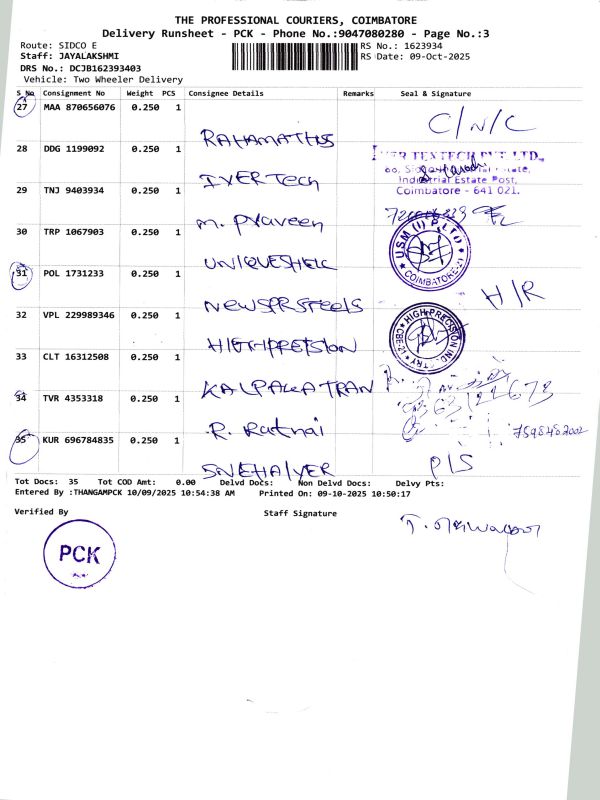 THE PROFESSIONAL COURIERS, COIMBATORE
Delivery Runsheet - PCK - Phone No.:9047080280 - Page No.:3
Route: SIDCO E
RS No.: 1623934
Staff: JAYALAKSHMI
RS Date: 09-Oct-2025
DRS No.: DCJB162393403
Vehicle: Two Wheeler Delivery
S No Consignment No Weight PCS Consignee Details Remarks Seal & Signature
27 MAA 870656076 0.250 1
C/N/C
RAHAMATHS
28 DDG 1199092 0.250 1
TEXTECH PVT LTD.,
Industrial Estate Post,
Coimbatore - 641 021.
IYER Tech
29 TNJ 9403934 0.250 1
M. Praveen
30 TRP 1067903 0.250 1
USM (I) P LTD
COIMBATORE-21
UNIQUESHELL
31 POL 1731233 0.250 1
H/R
NEWSPRSTEELS
32 VPL 229989346 0.250 1
HIGH PRECISION INDUSTRY
CBE-21
HIGHPRESION
33 CLT 16312508 0.250 1
KALPAKATRAN
34 TVR 4353318 0.250 1
7598482002
R. Ratnai
35 KUR 696784835 0.250 1
P/S
SNEHAIYER
Tot Docs: 35 Tot COD Amt: 0.00 Delvd Docs: Non Delvd Docs: Delvy Pts:
Entered By :THANGAMPCK 10/09/2025 10:54:38 AM Printed On: 09-10-2025 10:50:17
Verified By Staff Signature
PCK